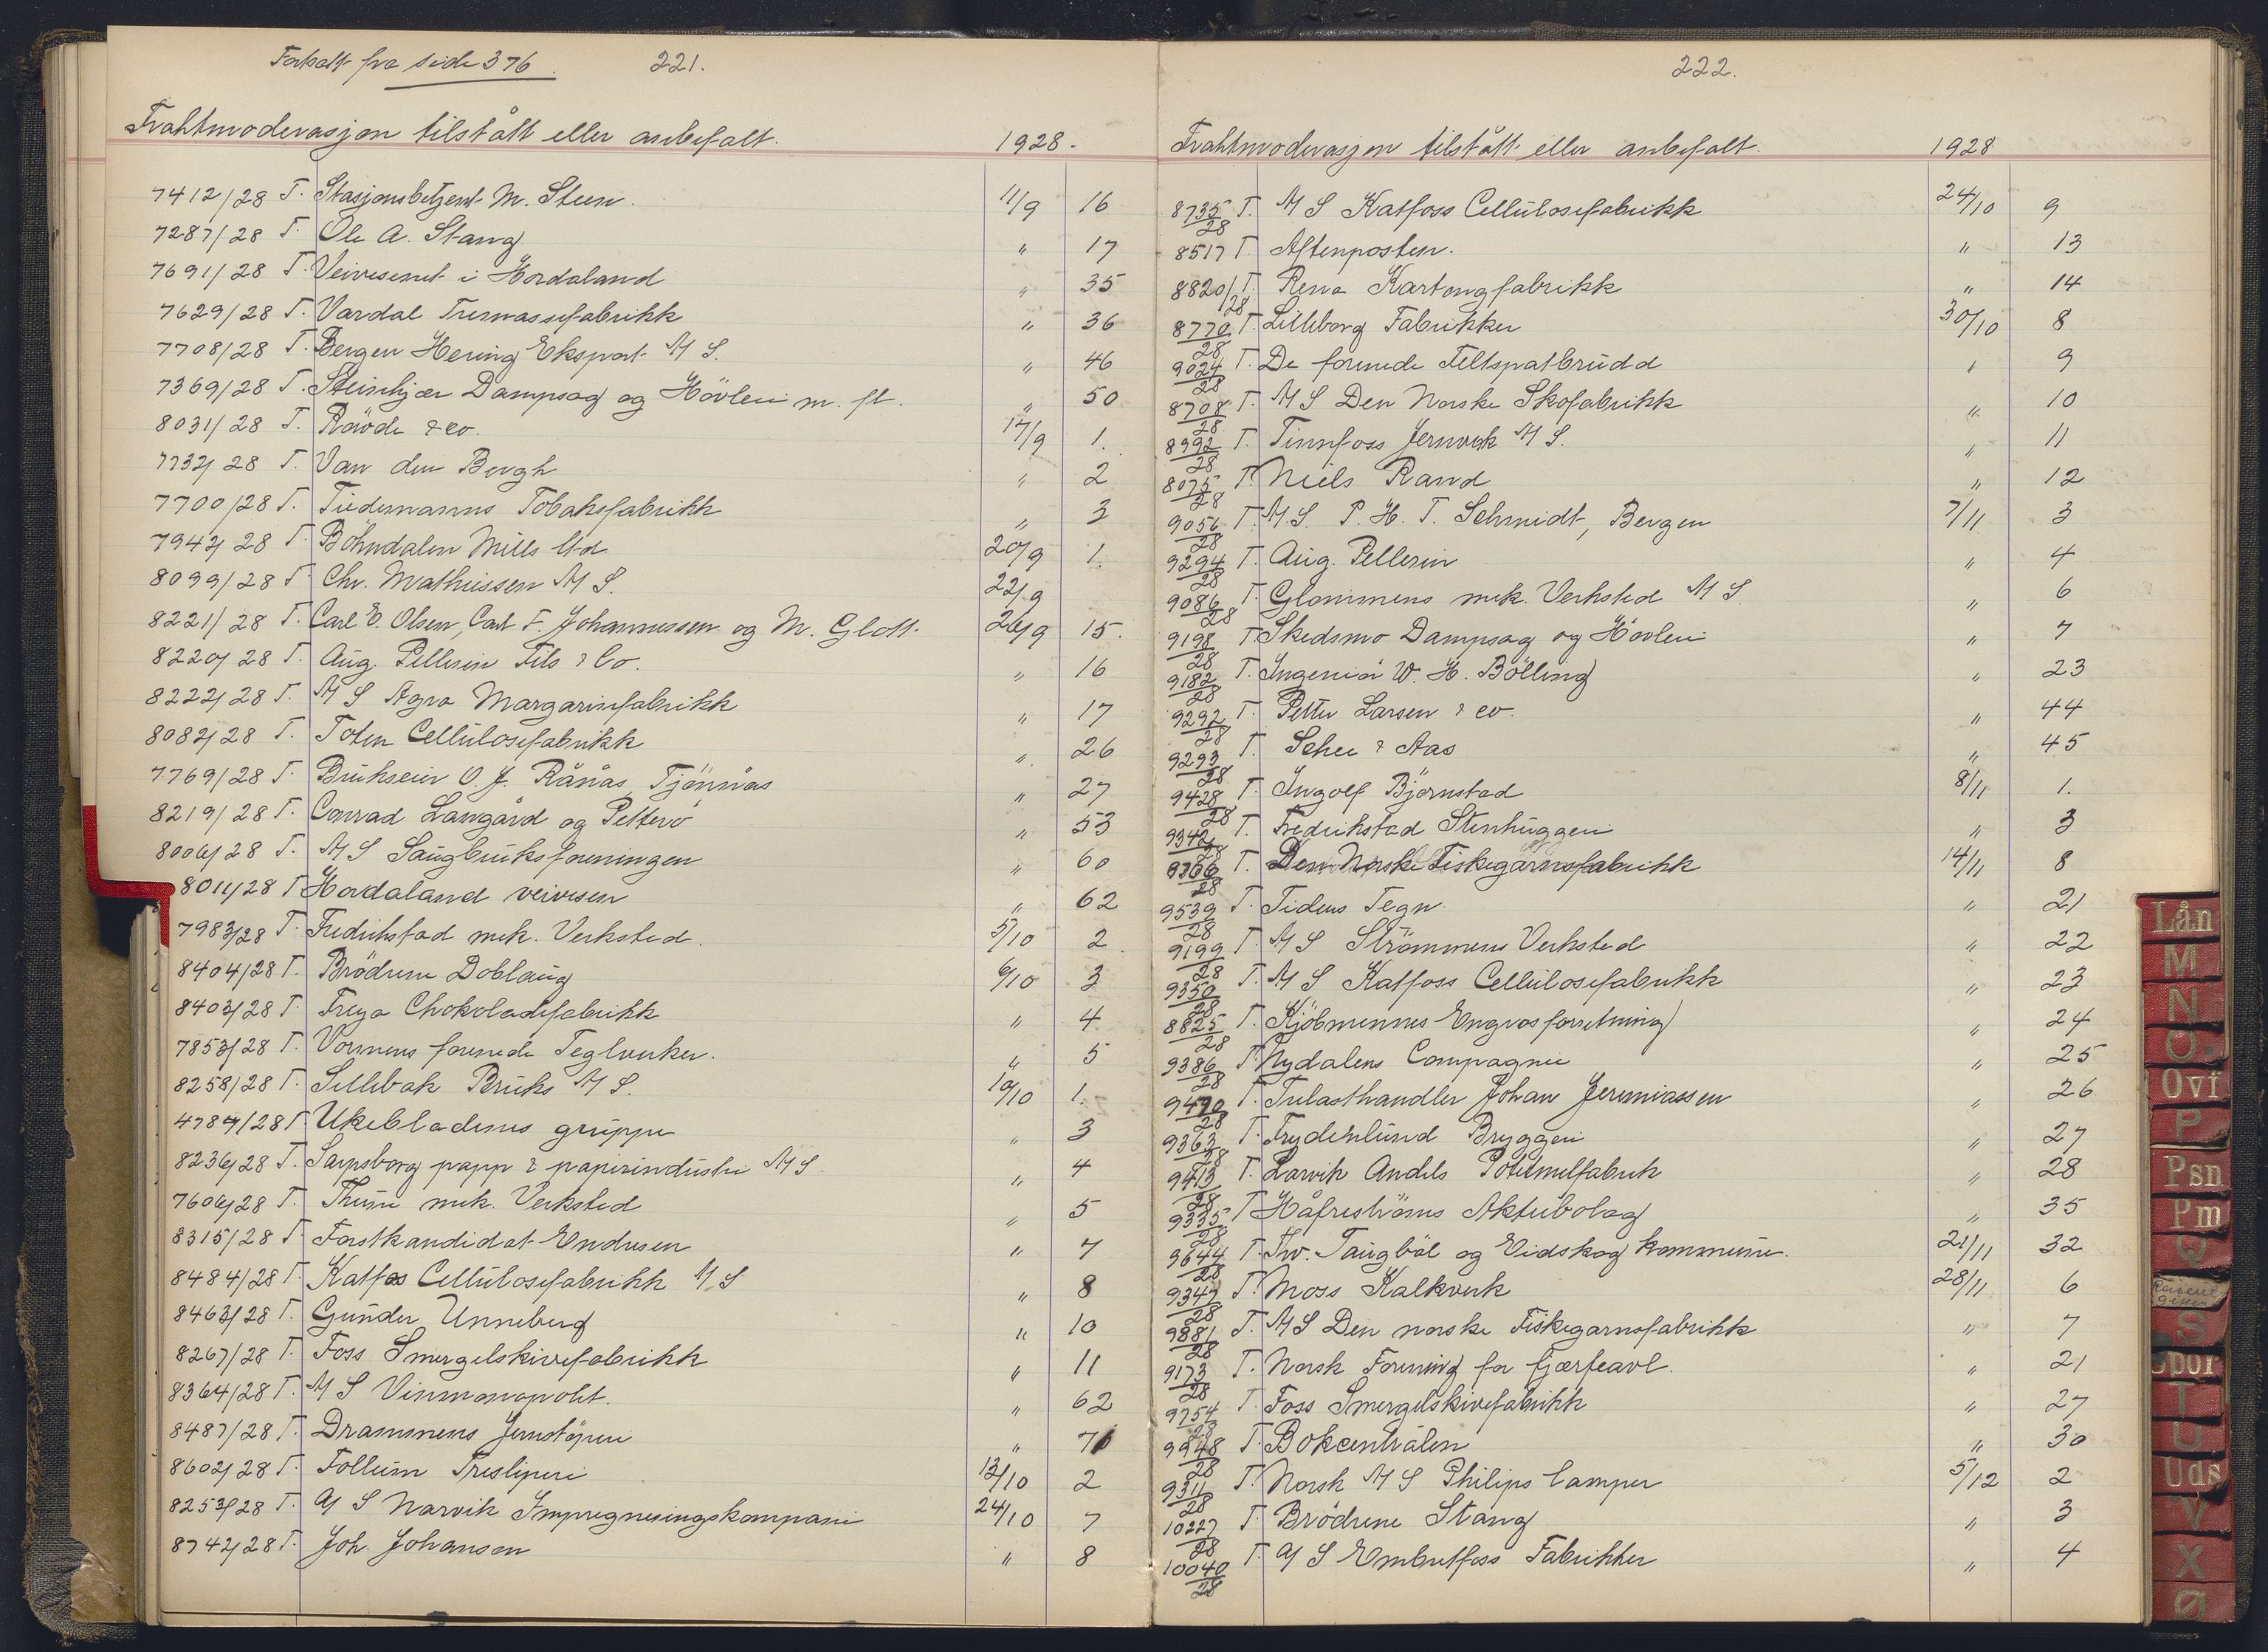 Fortsatt fra side 376. 221.
Frahtmoderasjon tilstått eller anbefalt. 1928.
7412/28 T. Stasjonsbetjent M. Steen. 11/9 16
7287/28 T. Ole A. Stang " 17
7691/28 T. Veivesenet i Hordaland " 35
7629/28 T. Vardal Tremassefabrikk " 36
7708/28 T. Bergen Hering Eksport A/S. " 46
7369/28 T. Steinkjær Dampsag og Høvleri m. fl. " 50
8031/28 T. Røwde & co. 17/9 1.
7732/28 T. Van den Bergh " 2
7700/28 T. Tiedemanns Tobaksfabrikk " 3
7942/28 T. Böhndalen Mills ltd. 20/9 1.
8099/28 T Chr. Mathiessen A/S. 22/9
8221/28 T. Carl E. Olsen, Carl F. Johannessen og M. Glott. 26/9 15.
8220/28 T. Aug. Pellerin Fils & Co. " 16
8222/28 T. A/S Agra Margarinfabrikk " 17
8082/28 T. Toten Cellulosefabrikk " 26
7769/28 T. Brukseier O. J. Rånås, Tjönnås " 27
8219/28 T. Conrad Langård og Petterö " 53
8006/28 T. A/S Saugbruksforeningen " 60
8011/28 T Hordaland veivesen " 62
7983/28 T. Fredrikstad mek. Verksted. 5/10 2
8404/28 T. Brödrene Doblaug 6/10 3
8403/28 T. Freya Chokoladefabrikk " 4
7853/28 T. Vormens forenede Teglverker. " 5
8258/28 T. Sellebak Bruks A/S. 10/10 1.
4784/28 T Ukebladenes gruppe " 3
8236/28 T. Sarpsborg papp & papirindustri A/S. " 4
7606/28 T. Thune mek. Verksted " 5
8315/28 T Forstkandidat Endresen " 7
8484/28 T. Katfos Cellulosefabrikk A/S " 8
8463/28 T. Gunder Unneberg " 10
8267/28 T. Foss Smergelskivefabrikk " 11
8364/28 T. A/S Vinmonopolet. " 62
8487/28 T. Drammens Jernstøperi " 71
8602/28 T. Follum Tresliperi 13/10 2
8253/28 T. A/S Narvik Impregneringskompani 24/10 7
8742/28 T. Joh. Johansen " 8
222.
Frahtmoderasjon tilstått eller anbefalt. 1928
8735/28 T. A/S Katfoss Cellulosefabrikk 24/10 9
8517 T Aftenposten. " 13
8820/28 T. Rena Kartongfabrikk " 14
8770/28 T. Lilleborg Fabrikker 30/10 8
9024/28 T. De forenede Feltspatbrudd " 9
8708/28 T. A/S Den Norske Skofabrikk " 10
8992/28 T. Tinnfoss Jernverk A/S. " 11
8075/28 T. Niels Rand " 12
9056/28 T. A/S. P. H. T. Schmidt, Bergen 7/11 3
9294/28 T. Aug. Pellerin " 4
9086/28 T. Glommens mek. Verksted A/S " 6
9198/28 T Skedsmo Dampsag og Høvleri " 7
9182/28 T. Ingeniör W. H. Bölling " 23
9292/28 T. Petter Larsen & co. " 44
9293/28 T. Schee & Aas " 45
9428/28 T. Ingolf Björnstad 8/11 1.
9342/28 T. Fredrikstad Stenhuggeri " 3
9366/28 T. Den Norske Fiskegarnsfabrikk 14/11 8
9539/28 T. Tidens Tegn " 21
9199/28 T A/S Strömmens Verksted " 22
9350/28 T. A/S Katfoss Cellulosefabrikk " 23
8825/28 T. Kjöbmennes Engrosforretning " 24
9386/28 T Nydalens Compagnie " 25
9490/28 T. Trelasthandler Johan Jeremiassen " 26
9363/28 T. Frydenlund Bryggeri " 27
9413/28 T. Larvik Andels Potetmelfabrik " 28
9335/28 T Håfreströms Aktiebolag " 35
9644/28 T. Thv. Taugböl og Eidskog kommune. 21/11 32
9347/28 T. Moss Kalkverk 28/11 6
9881/28 T. A/S Den norske Fiskegarnsfabrikk " 7
9173/28 T. Norsk Forening for fjærfeavl. " 21
9754/28 T Foss Smergelskivefabrikk " 27
9948/28 T. Bokcentralen " 30
9311/28 T. Norsk A/S Philips lamper 5/12 2
10227/28 T Brödrene Stang " 3
10040/28 T. A/S Embretfoss Fabrikker " 4
Lån
M
N
O
Ovi
P
Psn
Pm
Q
S
Spor
T
U
Uds
V
X
Ø